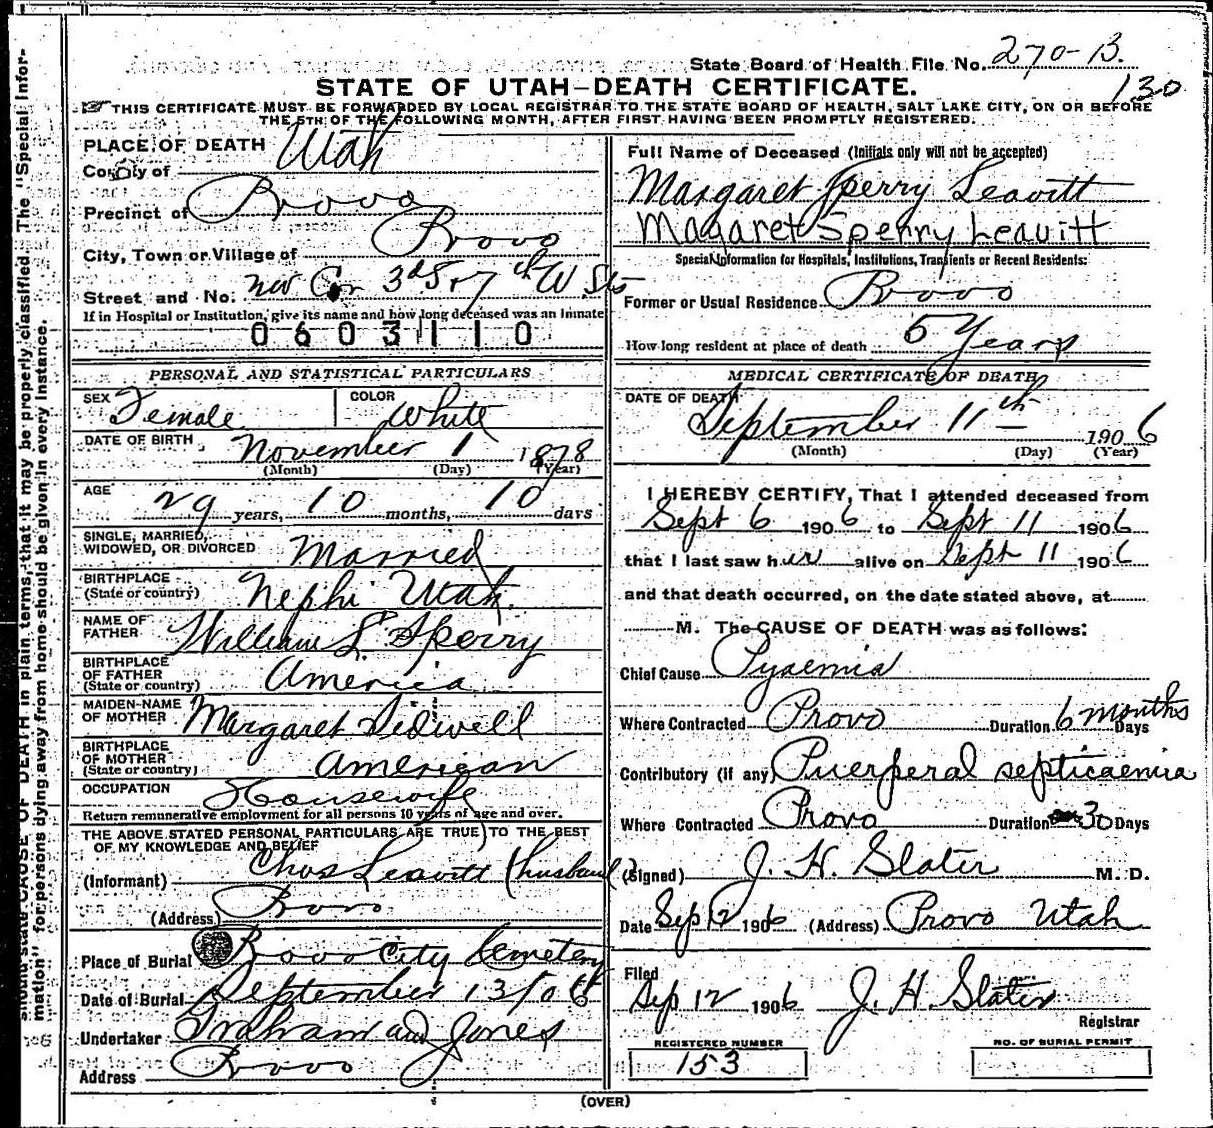 State Board of Health File No. 270-B.
130
STATE OF UTAH—DEATH CERTIFICATE.
THIS CERTIFICATE MUST BE FORWARDED BY LOCAL REGISTRAR TO THE STATE BOARD OF HEALTH, SALT LAKE CITY, ON OR BEFORE
THE 5TH OF THE FOLLOWING MONTH, AFTER FIRST HAVING BEEN PROMPTLY REGISTERED.
PLACE OF DEATH
County of Utah
Precinct of Provo
City, Town or Village of Provo
Street and No. nw Cor 3d S & 7th W Sts
If in Hospital or Institution, give its name and how long deceased was an Inmate
0603110
PERSONAL AND STATISTICAL PARTICULARS
SEX Female COLOR White
DATE OF BIRTH November 1 1878
(Month) (Day) (Year)
AGE 29 years, 10 months, 10 days
SINGLE, MARRIED,
WIDOWED, OR DIVORCED Married
BIRTHPLACE
(State or country) Nephi Utah.
NAME OF
FATHER William L Sperry
BIRTHPLACE
OF FATHER
(State or country) America
MAIDEN-NAME
OF MOTHER Margaret Sidwell
BIRTHPLACE
OF MOTHER
(State or country) American
OCCUPATION Housewife
Return remunerative employment for all persons 10 years of age and over.
THE ABOVE STATED PERSONAL PARTICULARS ARE TRUE TO THE BEST
OF MY KNOWLEDGE AND BELIEF
(Informant) Chas Leavitt (husband)
(Address) Provo
Place of Burial Provo City Cemetery
Date of Burial September 13/06
Undertaker Graham and Jones
Address Provo
Full Name of Deceased (Initials only will not be accepted)
Margaret Sperry Leavitt
Magaret Sperry Leavitt
Special Information for Hospitals, Institutions, Transients or Recent Residents:
Former or Usual Residence Provo
How long resident at place of death 5 Years
MEDICAL CERTIFICATE OF DEATH
DATE OF DEATH
September 11th 1906
(Month) (Day) (Year)
I HEREBY CERTIFY, That I attended deceased from
Sept 6 1906 to Sept 11 1906
that I last saw her alive on Sept 11 1906
and that death occurred, on the date stated above, at
M. The CAUSE OF DEATH was as follows:
Chief Cause Pyaemia
Where Contracted Provo Duration 6 months Days
Contributory (if any) Puerperal septicaemia
Where Contracted Provo Duration 30 Days
(Signed) J. H. Slater M. D.
Date Sep 12 1906 (Address) Provo Utah
Filed
Sep 12 1906 J. H. Slater
Registrar
REGISTERED NUMBER
153
NO. OF BURIAL PERMIT
(OVER)
should state CAUSE OF DEATH in plain terms, that it may be properly classified. The "Special Infor-
mation" for persons dying away from home should be given in every instance.